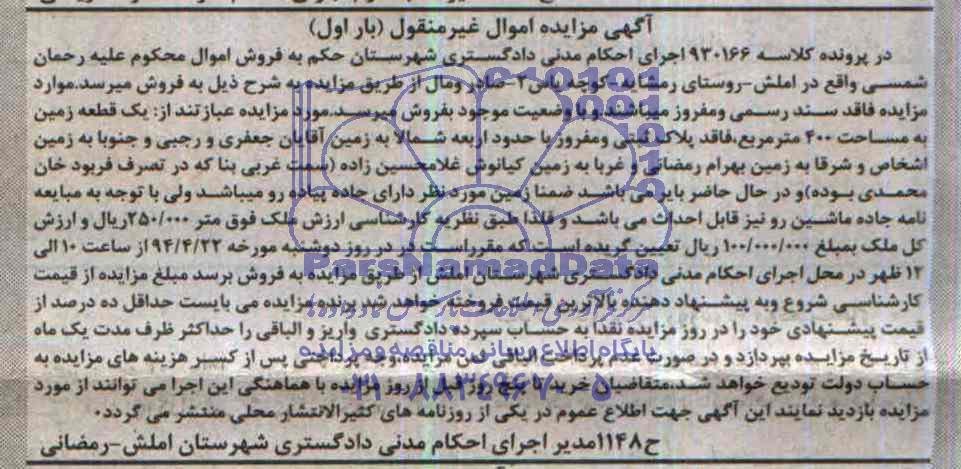 آگهی مزایده اموال غیرمنقول (بار اول)
در پرونده کلاسه ۹۳۰۱۶۶ اجرای احکام مدنی دادگستری شهرستان حکم به فروش اموال محکوم علیه رحمان
شمسی واقع در املش-روستای کوچه یاس۲-صادر ومال از طریق مزایده به شرح ذیل به فروش میرسد.موارد
مزایده فاقد سند رسمی ومفروز میباشند و با وضعیت موجود بفروش میرسد.مورد مزایده عبارتند از: یک قطعه زمین
به مساحت ۴۰۰ مترمربع،فاقد پلاک ثبتی ومفروز با حدود اربعه شمالا به زمین آقایان جعفری و رجبی و جنوبا به زمین
اشخاص و شرقا به زمین بهرام رمضانی و غربا به زمین کیانوش غلامحسین زاده (سمت غربی بنا که در تصرف فربود خان
محمدی بوده)و در حال حاضر بایر می باشد ضمنا زمین مورد نظر دارای جاده پیاده رو میباشد ولی با توجه به مبایعه
نامه جاده ماشین رو نیز قابل احداث می باشد و فلذا طبق نظریه کارشناسی ارزش ملک فوق متر ۲۵۰/۰۰۰ریال و ارزش
کل ملک بمبلغ ۱۰۰/۰۰۰/۰۰۰ ریال تعیین گریده است که مقرراست در در روز دوشنبه مورخه ۹۴/۴/۲۲ از ساعت ۱۰ الی
۱۲ ظهر در محل اجرای احکام مدنی دادگستری شهرستان املش از طریق مزایده به فروش برسد مبلغ مزایده از قیمت
کارشناسی شروع وبه پیشنهاد دهنده بالاترین قیمت فروخته خواهد شد.برنده مزایده می بایست حداقل ده درصد از
قیمت پیشنهادی خود را در روز مزایده نقدا به حساب سپرده دادگستری واریز و الباقی را حداکثر ظرف مدت یک ماه
از تاریخ مزایده بپردازد و در صورت عدم پرداخت الباقی ثمن مزایده وجه پرداختی پس از کسر هزینه های مزایده به
حساب دولت تودیع خواهد شد.متقاضیان خرید تا پنج روز قبل از روز مزایده با هماهنگی این اجرا می توانند از مورد
مزایده بازدید نمایند این آگهی جهت اطلاع عموم در یکی از روزنامه های کثیرالانتشار محلی منتشر می گردد.
ح۱۱۴۸مدیر اجرای احکام مدنی دادگستری شهرستان املش-رمضانی
ParsNamadData
پایگاه اطلاع رسانی مناقصه و مزایده
۰۲۱-۸۸۳۴۹۶۷۰-۵